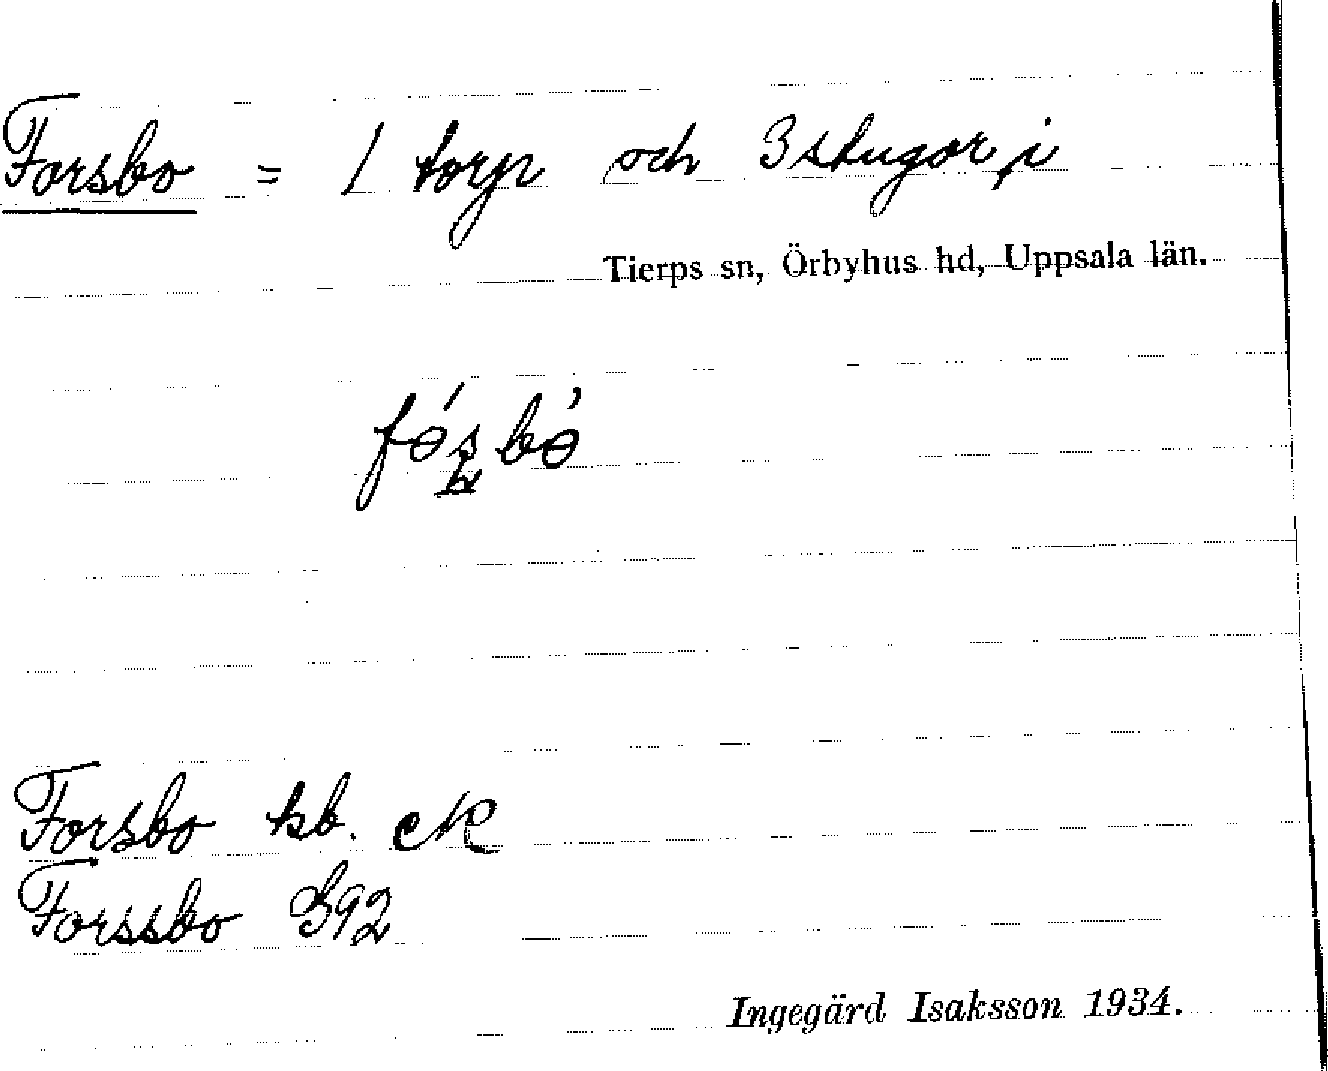 Forsbo = 1 torp och 3 stugor, i
Tierps sn, Örbyhus hd, Uppsala län.
Forsbo kb. ek
Forssbo S92
Ingegärd Isaksson 1934.